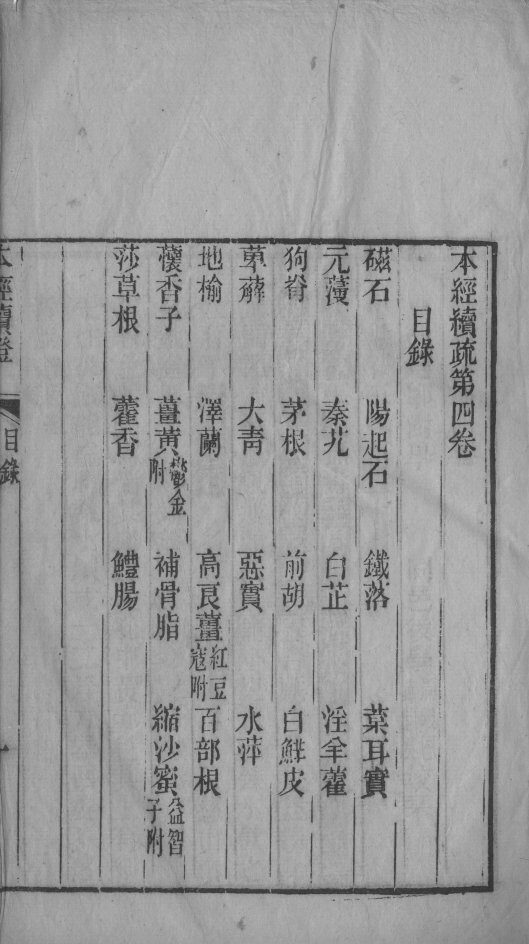 本經續疏第四卷
目錄
磁石 陽起石 鐵落 葈耳實
元薓 秦艽 白芷 淫羊藿
狗脊 茅根 前胡 白鮮皮
萆薢 大青 惡實 水萍
地榆 澤蘭 高良薑紅豆蔻附 百部根
懷香子 薑黃鬱金附 補骨脂 縮沙蜜益智子附
莎草根 藿香 鱧腸
本經續證 目錄